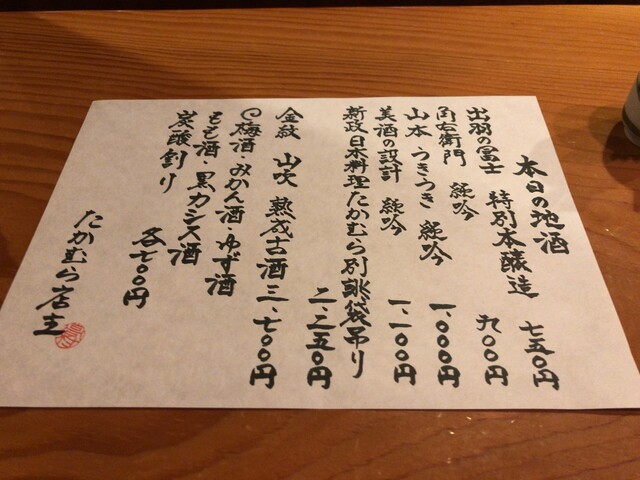 本日の地酒
出羽の冨士 特別本醸造 七五〇円
角右衛門 純吟 九〇〇円
山本 うきうき 純吟 一、〇〇〇円
美酒の設計 純吟 一、一〇〇円
新政日本料理たかむら別誂袋吊り
二、二五〇円
金紋 山吹 熟成古酒 三、七〇〇円
梅酒・みかん酒・ゆず酒
もも酒・黒カシス酒
炭酸割り 各七〇〇円
たかむら店主